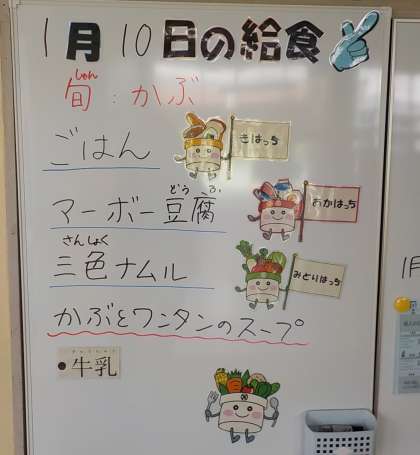 1月10日の給食
しゅん
旬：かぶ
ごはん
きはっち
どうふ
マーボー豆腐
あかはっち
さんしょく
三色ナムル
みどりはっち
かぶとワンタンのスープ
●牛乳